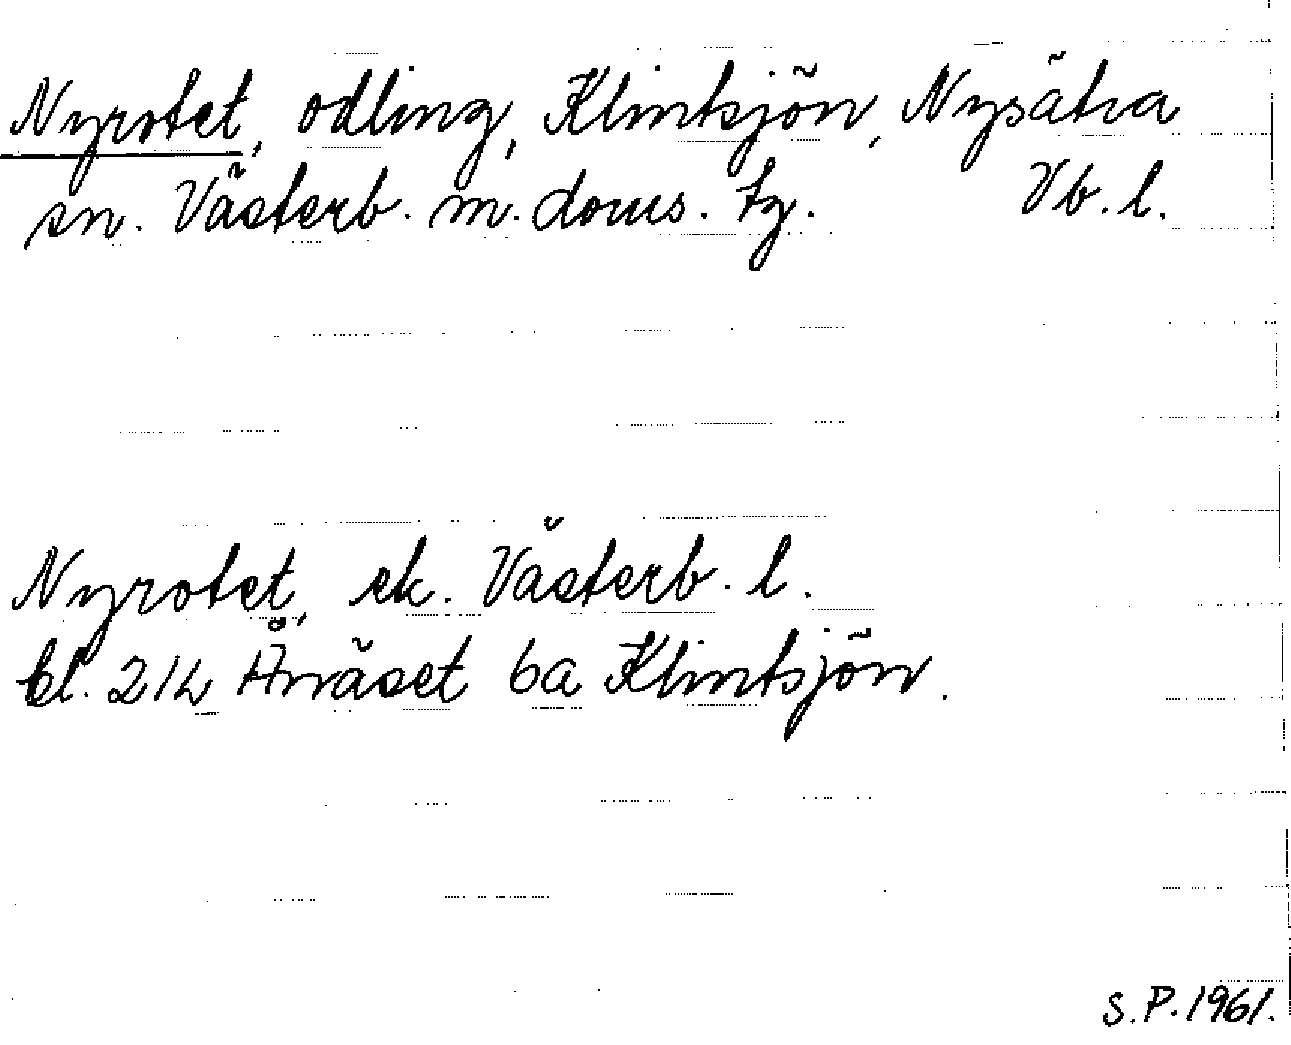 Nyrotet, odling, Klintsjön, Nysätra
sn. Västerb. m. doms. tg. Vb. l.
Nyrotet, ek. Västerb. l.
bl. 21h Ånäset 6a Klintsjön.
S.P. 1961.